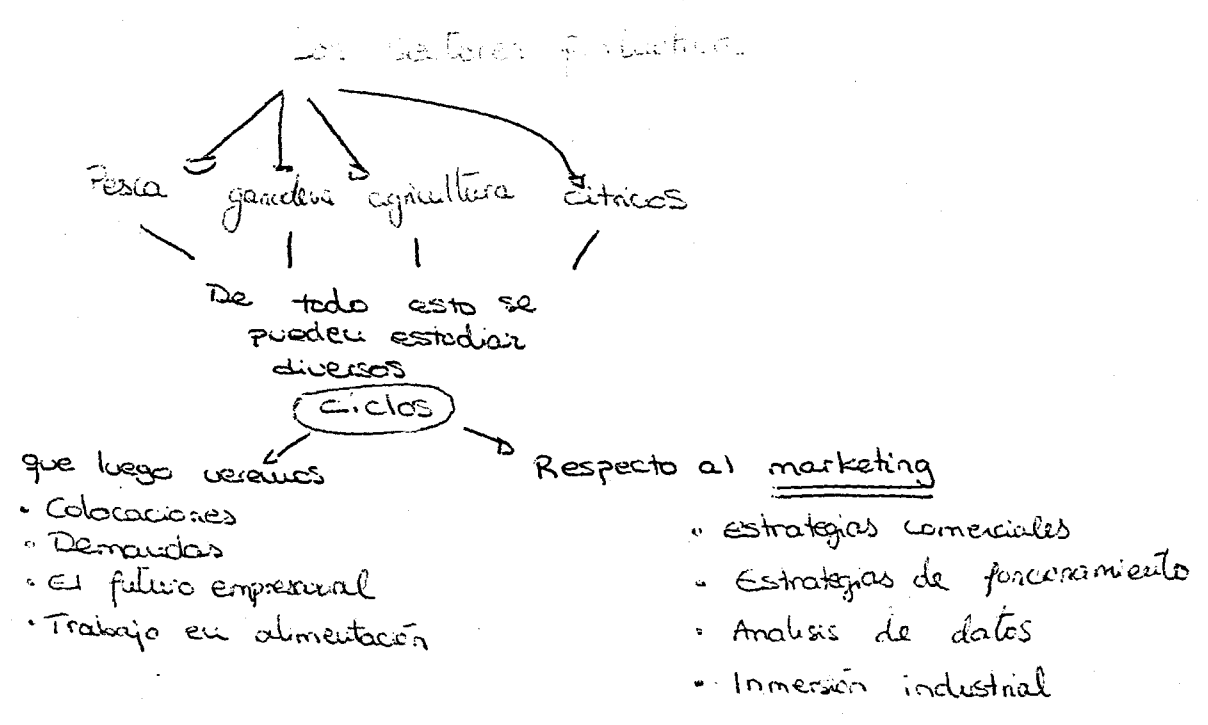 Los sectores productivos
Pesca ganadería agricultura cítricos
De todo esto se
pueden estudiar
diversos
ciclos
que luego veremos
• Colocaciones
• Demandas
• El futuro empresarial
• Trabajo en alimentación
Respecto al marketing
• Estrategias comerciales
• Estrategias de funcionamiento
• Analisis de datos
• Inmersión industrial